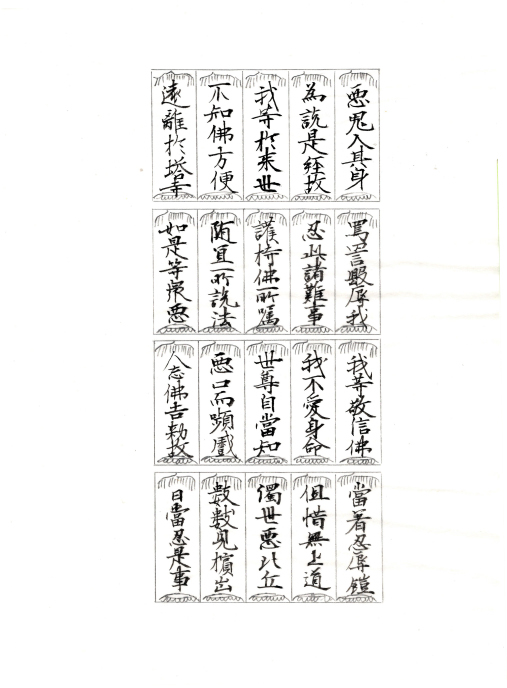 悪鬼入其身
罵詈毀辱我
我等敬信佛
當著忍辱鎧
為說是經故
忍此諸難事
我不愛身命
但惜無上道
我等於来世
護持佛所囑
世尊自當知
濁世悪比丘
不知佛方便
随宜所說法
悪口而顰蹙
數數見擯出
遠離於塔寺
如是等衆悪
念佛告勅故
皆當忍是事